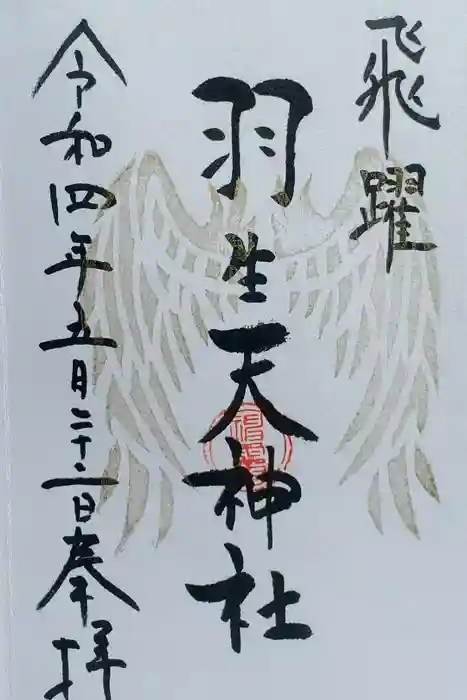 飛躍
羽生天神社
令和四年五月二十二日奉拝